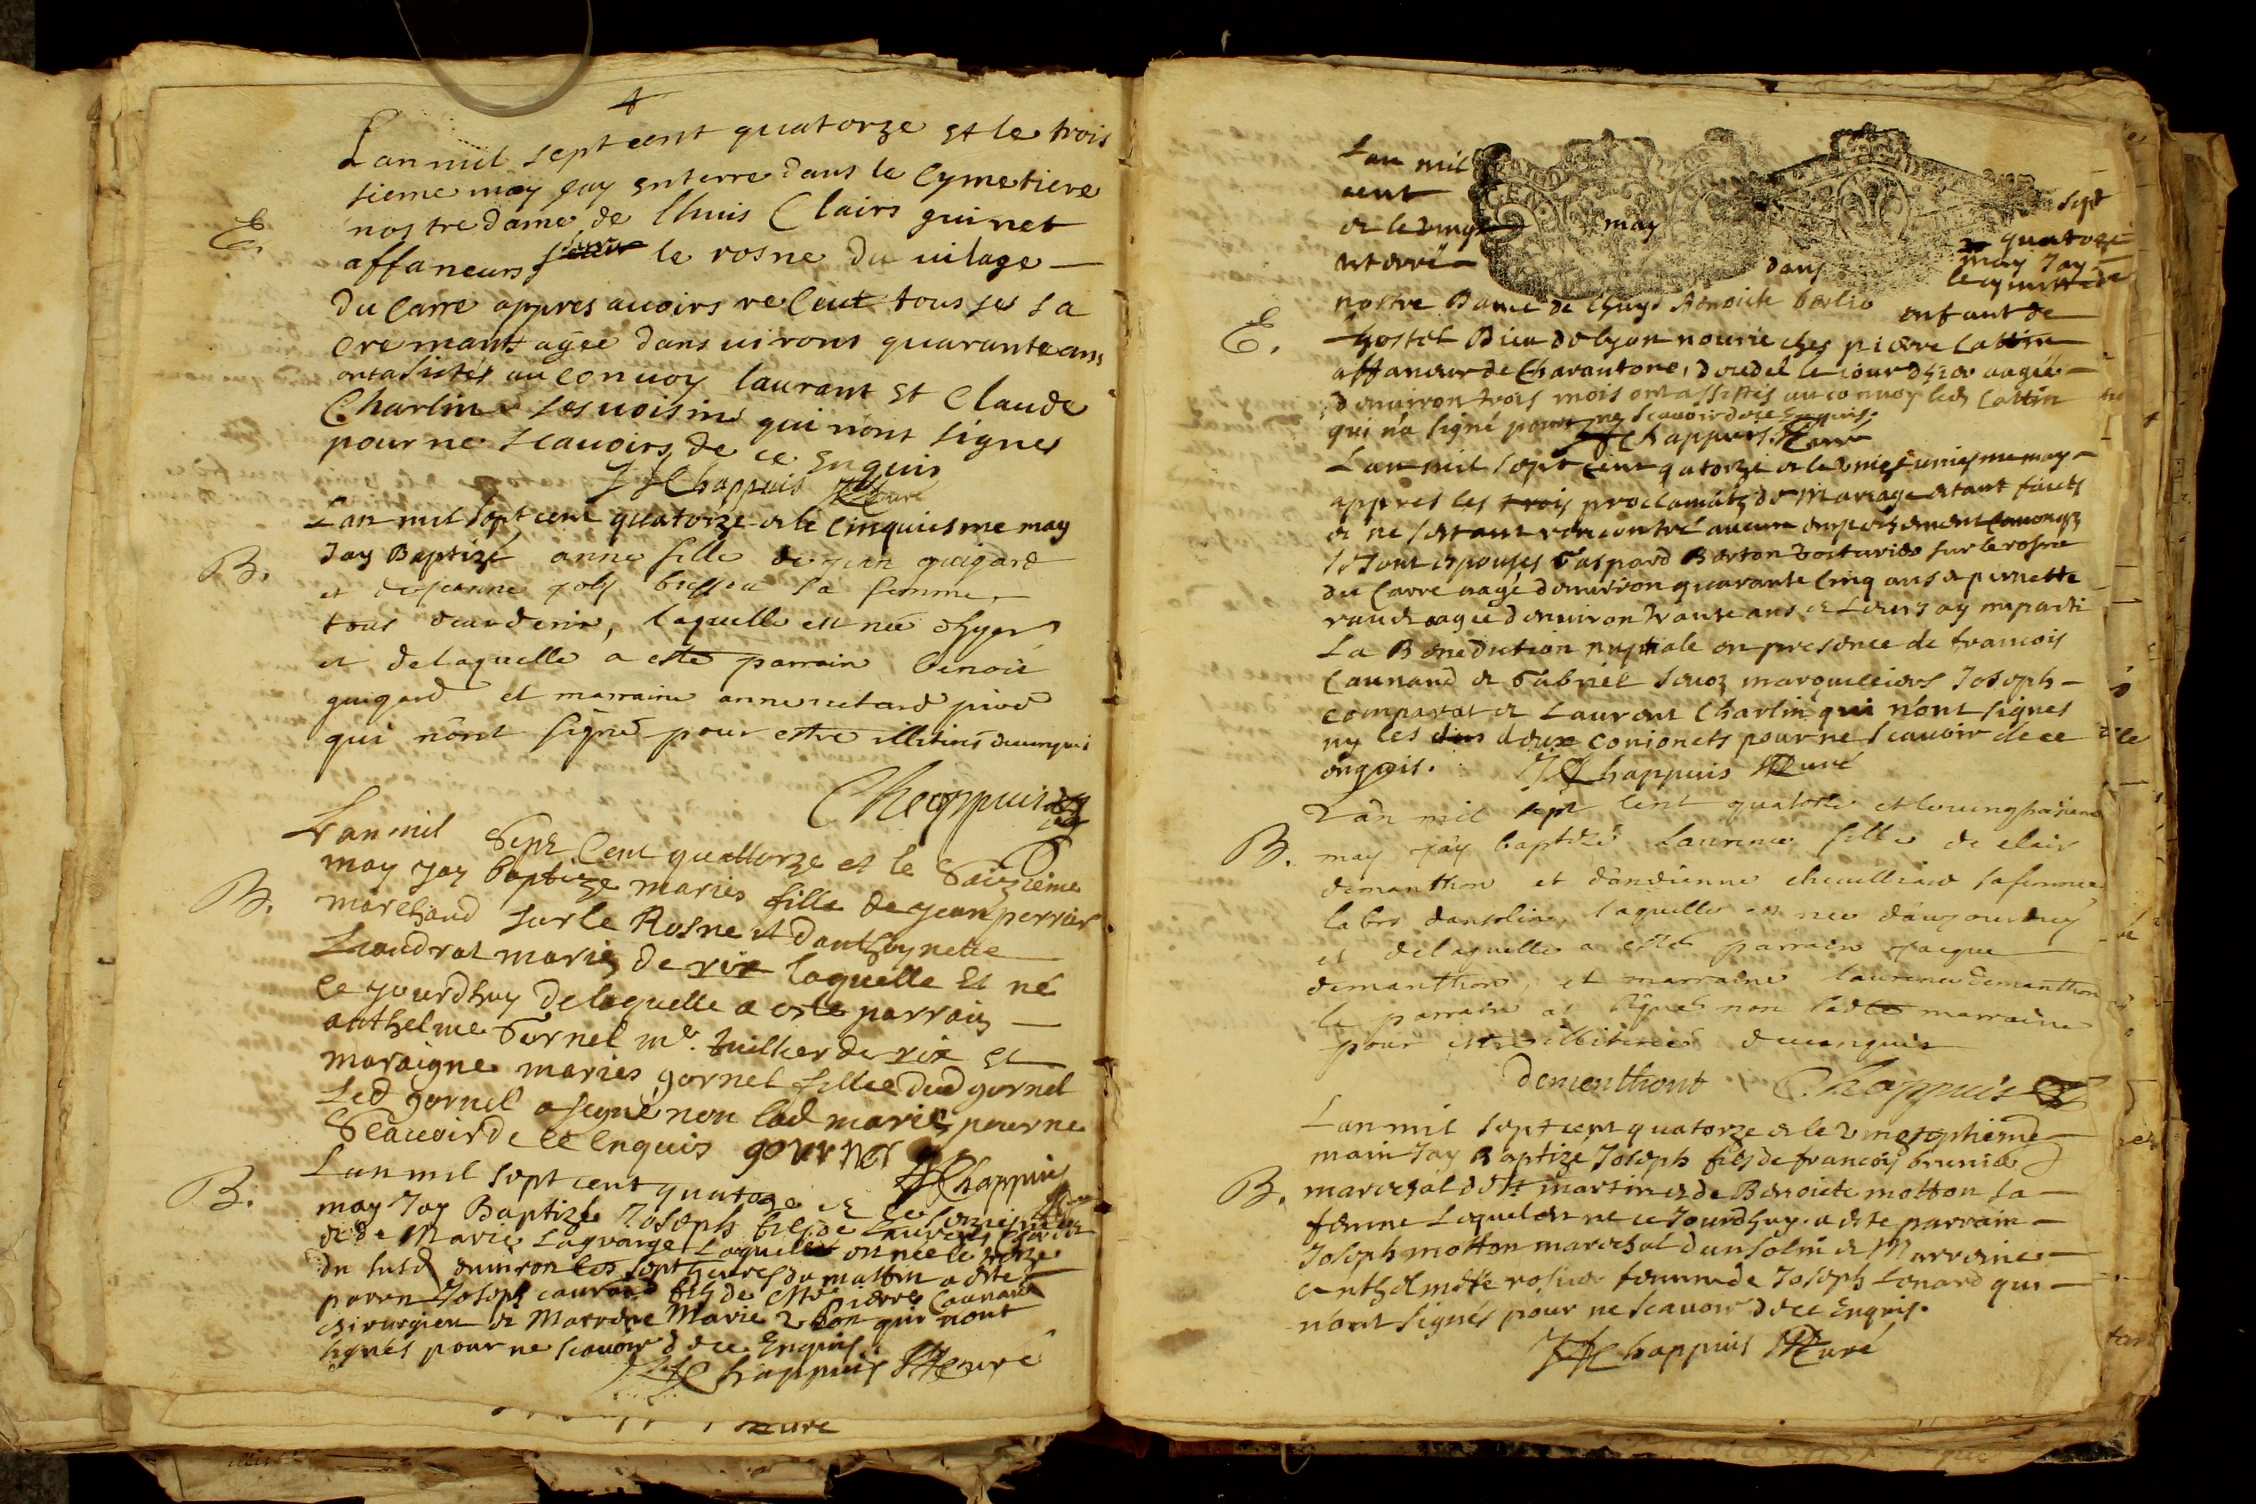 Lan mil sept cent quatorze et le trois
sieme may jay enterre dans le Cymetiere
nostre dame de lhuis Clairs guinet
E.
affaneurs sur le rosne du vilage
du Carre appres avoirs receut tous ses sa
cremants agée danvirons quarante ans
ont asistes au convoy laurant et Claude
Charlin ses voisins qui nont signes
pour ne scavoirs de ce enquis
JF Chappuis Curé
Lan mil sept cent quatorze et le Cinquiesme may
B.
Jay Baptizé anne fille de jean guigard
et de jeanne sa femme
tous laquelle est née
et de laquelle a esté parrain benoit
guigard et marraine anne
qui nont signé pour estre illitires de ce enquis
Chappuis
Lan mil Sept Cent quattorze et le Saizieme
B.
may jay baptize maries fille de jean perrier
marchand sur le Rosne et danthoynette
maries de rix laquelle et né
ce jourdhuy de laquelle a este parrain
anthelme Gornel me tuillier de rix et
maraigne maries gornel fillie dud gornel
led gornel a signé non lad maries pour ne
Scavoir de ce Enquis gournel
JF Chappuis Curé
B.
Lan mil sept cent quatorze et le
may Jay Baptizé Joseph fils de Laurens Charlin
et de Marie Lagrange Laquelle est née le
du susd environ les sept heures du mattin a esté
parrn Joseph caunand fils de Mre Pierre Caunand
chirurgien et Marrene Marie qui nont
signés pour ne scavoir de ce Enquis.
JF Chappuis Curé
Curé
Lan mil sept
cent quatorze
et le vingt may may Jay
enterré dans le cymettiere
nostre Dame de Lhuys Benoite berlio enfant de
E.
hostel Dieu de lyon nourie ches pierre Cattin
affaneur de Charantone, decedé le jour dhier aagée
denviron trois mois ont assistés au convoy led Cattin
qui na signé pour ne scavoir de ce Enquis.
JF Chappuis Curé
Lan mil sept cent quatorze et le vingt uniesme may
appres les trois proclamats de Mariage etant faicts
et ne sestant rencontré aucun empechement
Gaspard Berton voiturier sur le rosne
du Carre aagé denviron quarante Cinq ans et pernette
aagée denviron trante ans et Leurs ay imparti
La Benediction nuptiale en presence de francois
Caunand et Gabriel marguilliers Joseph
comparat et Laurent Charlin qui nont signes
ny les deux conionets pour ne scavoir de ce
enquis. JF Chappuis Curé
Lan mil sept cent quatorze et le
B.
may jay baptizé Laurence fille de clair
demanthon et dandrienne sa femme
labr dansolin, laquelle est née daujourdhuy
et de laquelle a esté parrain jacque
demanthon, et marraine laurence demanthon
le parrain a signé non ladte marraine
pour estre illitirée de ce enquis
demonthont Chappuis
Lan mil sept cent quatorze et le vingt septieme
may Jay Baptizé Joseph fils de francois brunier
B.
marechal de st martin et de Benoicte motton sa
femme Lequel est ne ce Jourdhuy. a esté parrain
Joseph motton marechal dansolin et Marreine
canthelmette rosier femme de Joseph Lonard qui
nont signés pour ne scavoir de ce Enquis.
JF Chappuis Curé